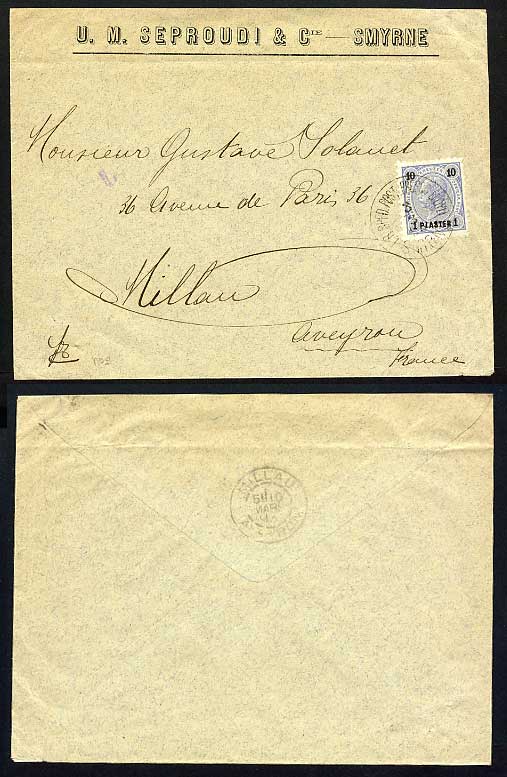 U. M. SEPROUDI & CIE — SMYRNE
Monsieur Gustave Solanet
36 Avenue de Paris 36
10 10
1 PIASTER 1
Millau
Aveyron
France
MILLAU
10
MARS